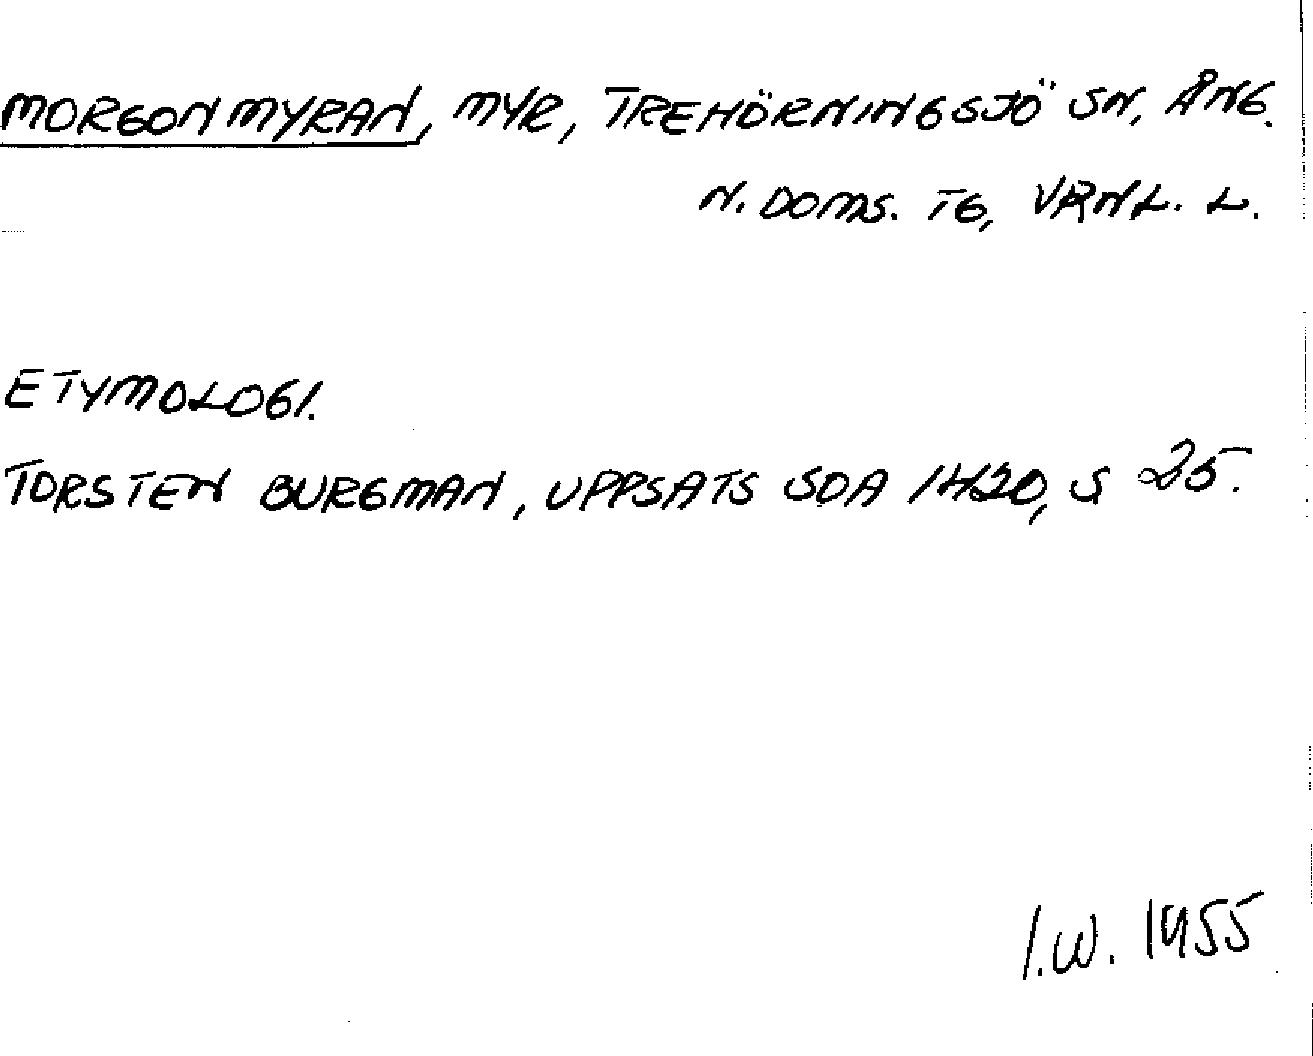 MORGONMYRAN, MYR, TREHÖRNINGSJÖ SN, ÅNG.
N. DOMS. TG, VRNL. L.
ETYMOLOGI.
TORSTEN BURGMAN, UPPSATS SOA 1420, S 25.
I.W. 1955